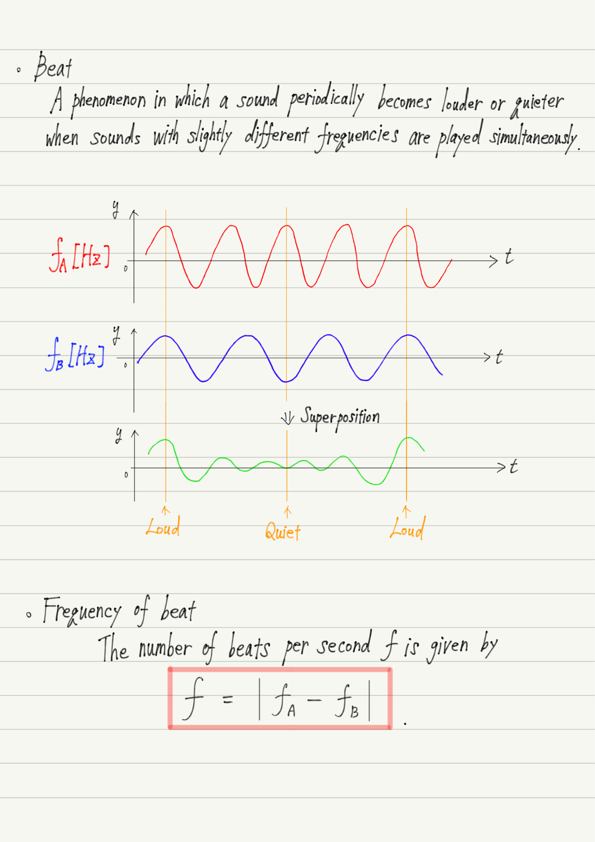 。Beat
A phenomenon in which a sound periodically becomes louder or quieter
when sounds with slightly different frequencies are played simultaneously.
y
fA [Hz]
0
t
y
fB [Hz]
0
t
⇓ Superposition
y
0
t
↑ ↑ ↑
Loud Quiet Loud
。Frequency of beat
The number of beats per second f is given by
f = | fA − fB | .